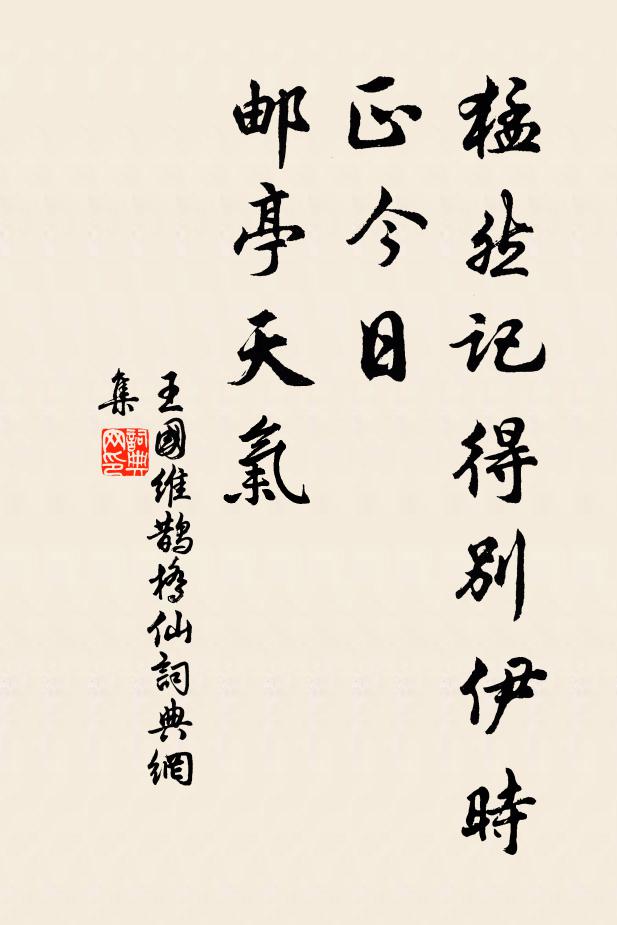 猛然記得別伊時
正今日
邮亭天氣
王國維鵲橋仙詞典網
集
詞典
网印